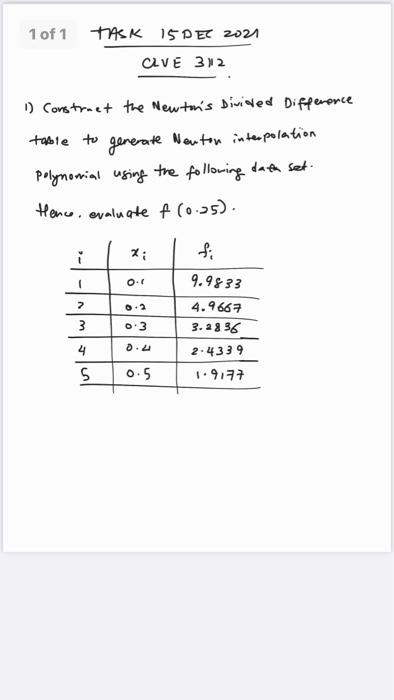 1 of 1
TASK 15 DEC 2021
CLVE 3112
1) Construct the Newton's Divided Difference
table to generate Newton interpolation
polynomial using the following data set.
Hence, evaluate f (0.25).
i xi fi
1 0.1 9.9833
2 0.2 4.9667
3 0.3 3.2836
4 0.4 2.4339
5 0.5 1.9177